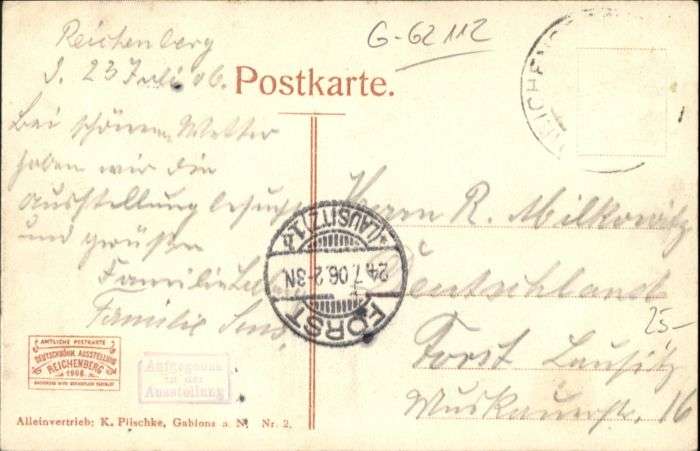 G-62112
Reichenberg
d. 23 Juli 06.
Postkarte.
REICHENBERG
Bei schönem Wetter
haben wir die
Ausstellung besucht
und grüßen
Familie
Familie
Herrn R. Milkowitz
Deutschland
Forst Lausitz
Muskauerstr. 16
25-
FORST
24.7.06.2-3N
*(LAUSITZ)1.
AMTLICHE POSTKARTE
DEUTSCHBÖHM. AUSSTELLUNG
REICHENBERG
1906
Aufgegeben
in der
Ausstellung
Alleinvertrieb: K. Plischke, Gablonz a. N. Nr. 2.